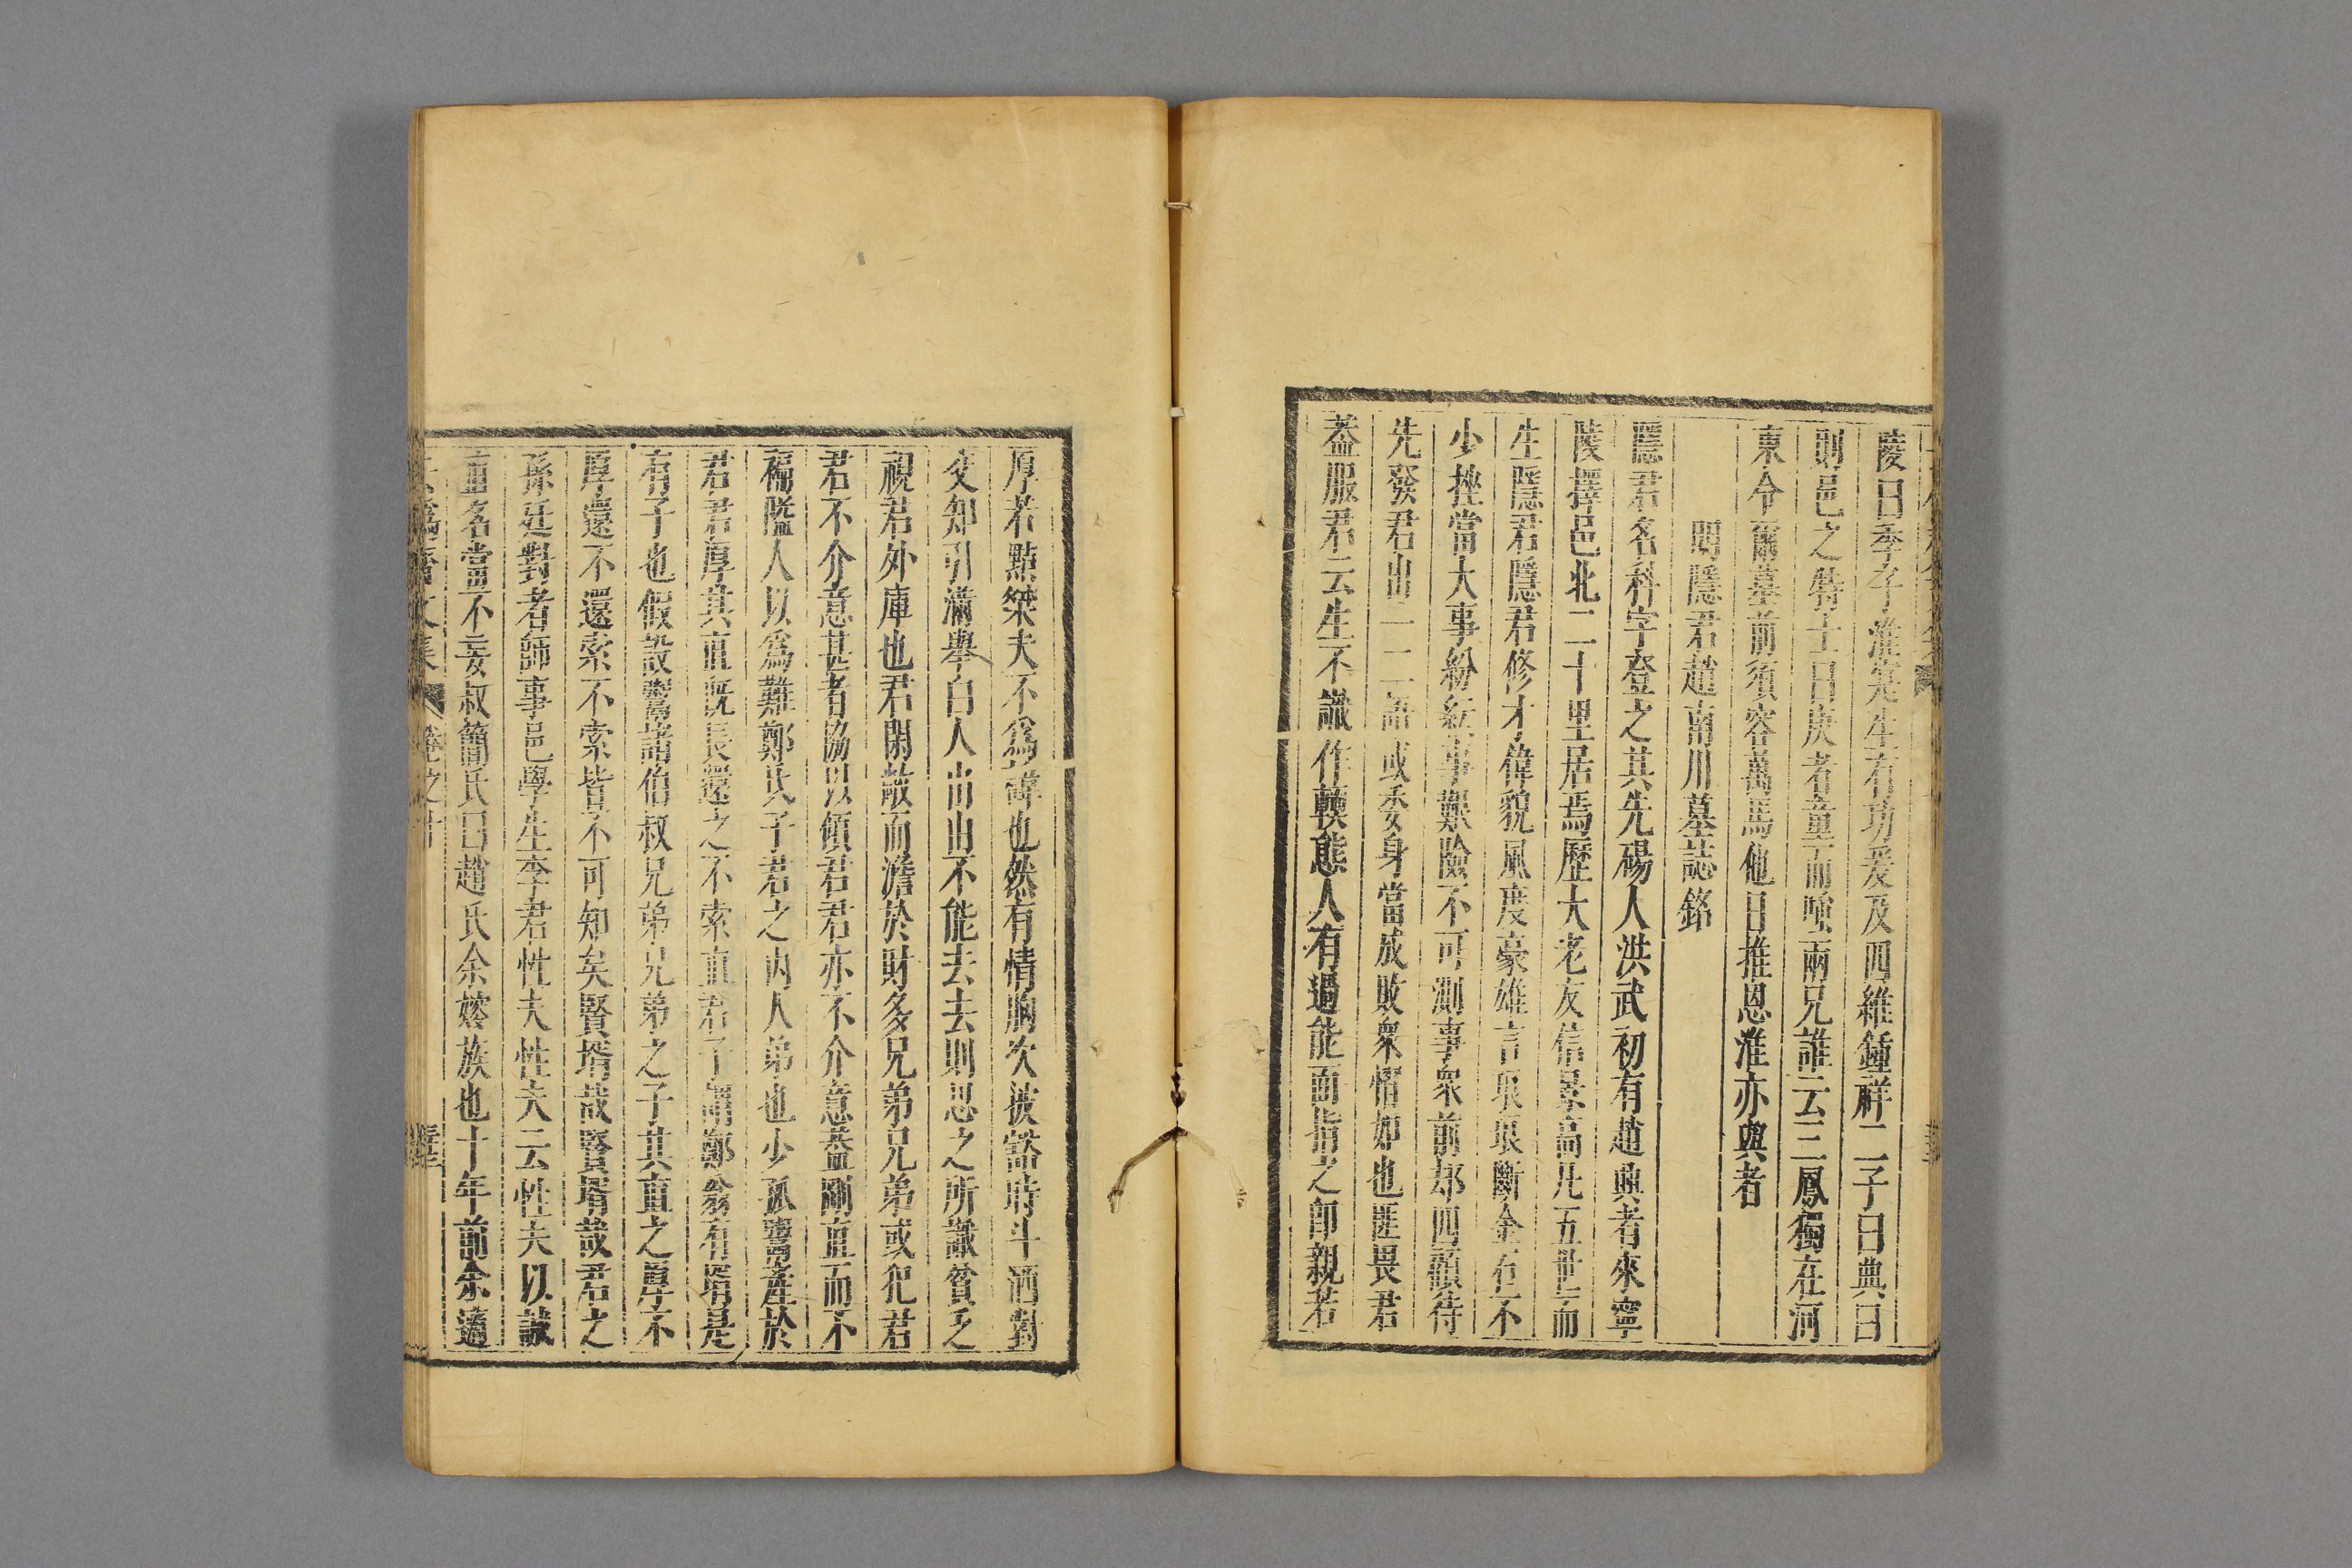 陵曰季子淮寔生有功爰及四維鍾祥二子曰典曰
則邑之特士曰庚者童而喰兩兄誰云三鳳獨在河
東今爾墓前須容萬馬他日推恩淮亦與者
明隱君趙南川墓誌銘
隱君名科字登之其先碭人洪武初有趙興者來寧
陵擇邑北二十里居焉歷大老友信景高凡五世而
生隱君隱君修才偉貌風度豪雄言現現斷金石不
少挫當大事紛紜事艱險不可測事衆前却四顧待
先發君出一二語或委身當成敗衆慴如也匪畏君
蓋服君云生不識作輭態人有過能面指之卽親若
厚若點桀夫不爲諱也然有情胸次披豁時斗酒對
交知引滿舉白人出由不能去去則思之所識貧乏
視君外庫也君閑敞而澹於財多兄弟兄弟或犯君
君不介意甚者協以傾君君亦不介意蓋剛直而不
褊隘人以爲難鄭氏子君之內人弟也少孤鬻產於
君君厚其直旣長還之不索直君子謂鄭翁有壻是
有子也假設鬻諸伯叔兄弟兄弟之子其直之厚不
厚還不還索不索皆不可知矣賢壻哉賢壻哉君之
孫廷對者師事邑學生李君性夫性夫云性夫以誠
直名當不妄叔簡氏曰趙氏余嫁族也十年前余適